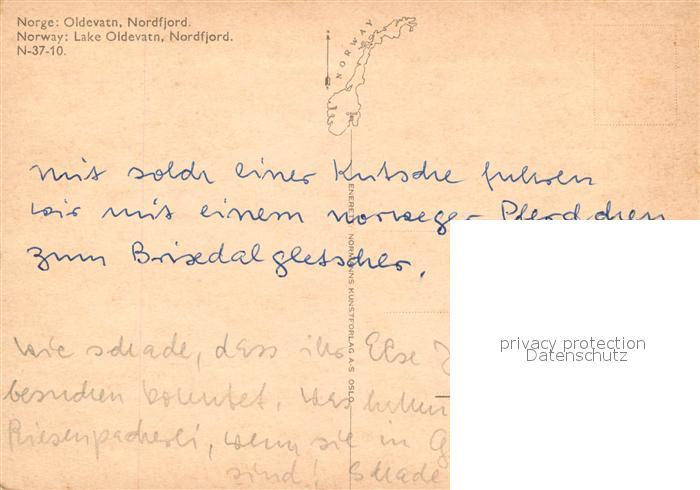 Norge: Oldevatn, Nordfjord.
Norway: Lake Oldevatn, Nordfjord.
N-37-10.
NORWAY
mit solch einer Kutsche fuhren
wir mit einem norweger Pferdchen
zum Brixdalgletscher.
ENERETT NORMANNS KUNSTFORLAG A-S OSLO
privacy protection
Datenschutz
wie schade, dass ihr Else
besuchen konntet. was
Riesenpacherli, wenn sie in G
sind! Schade